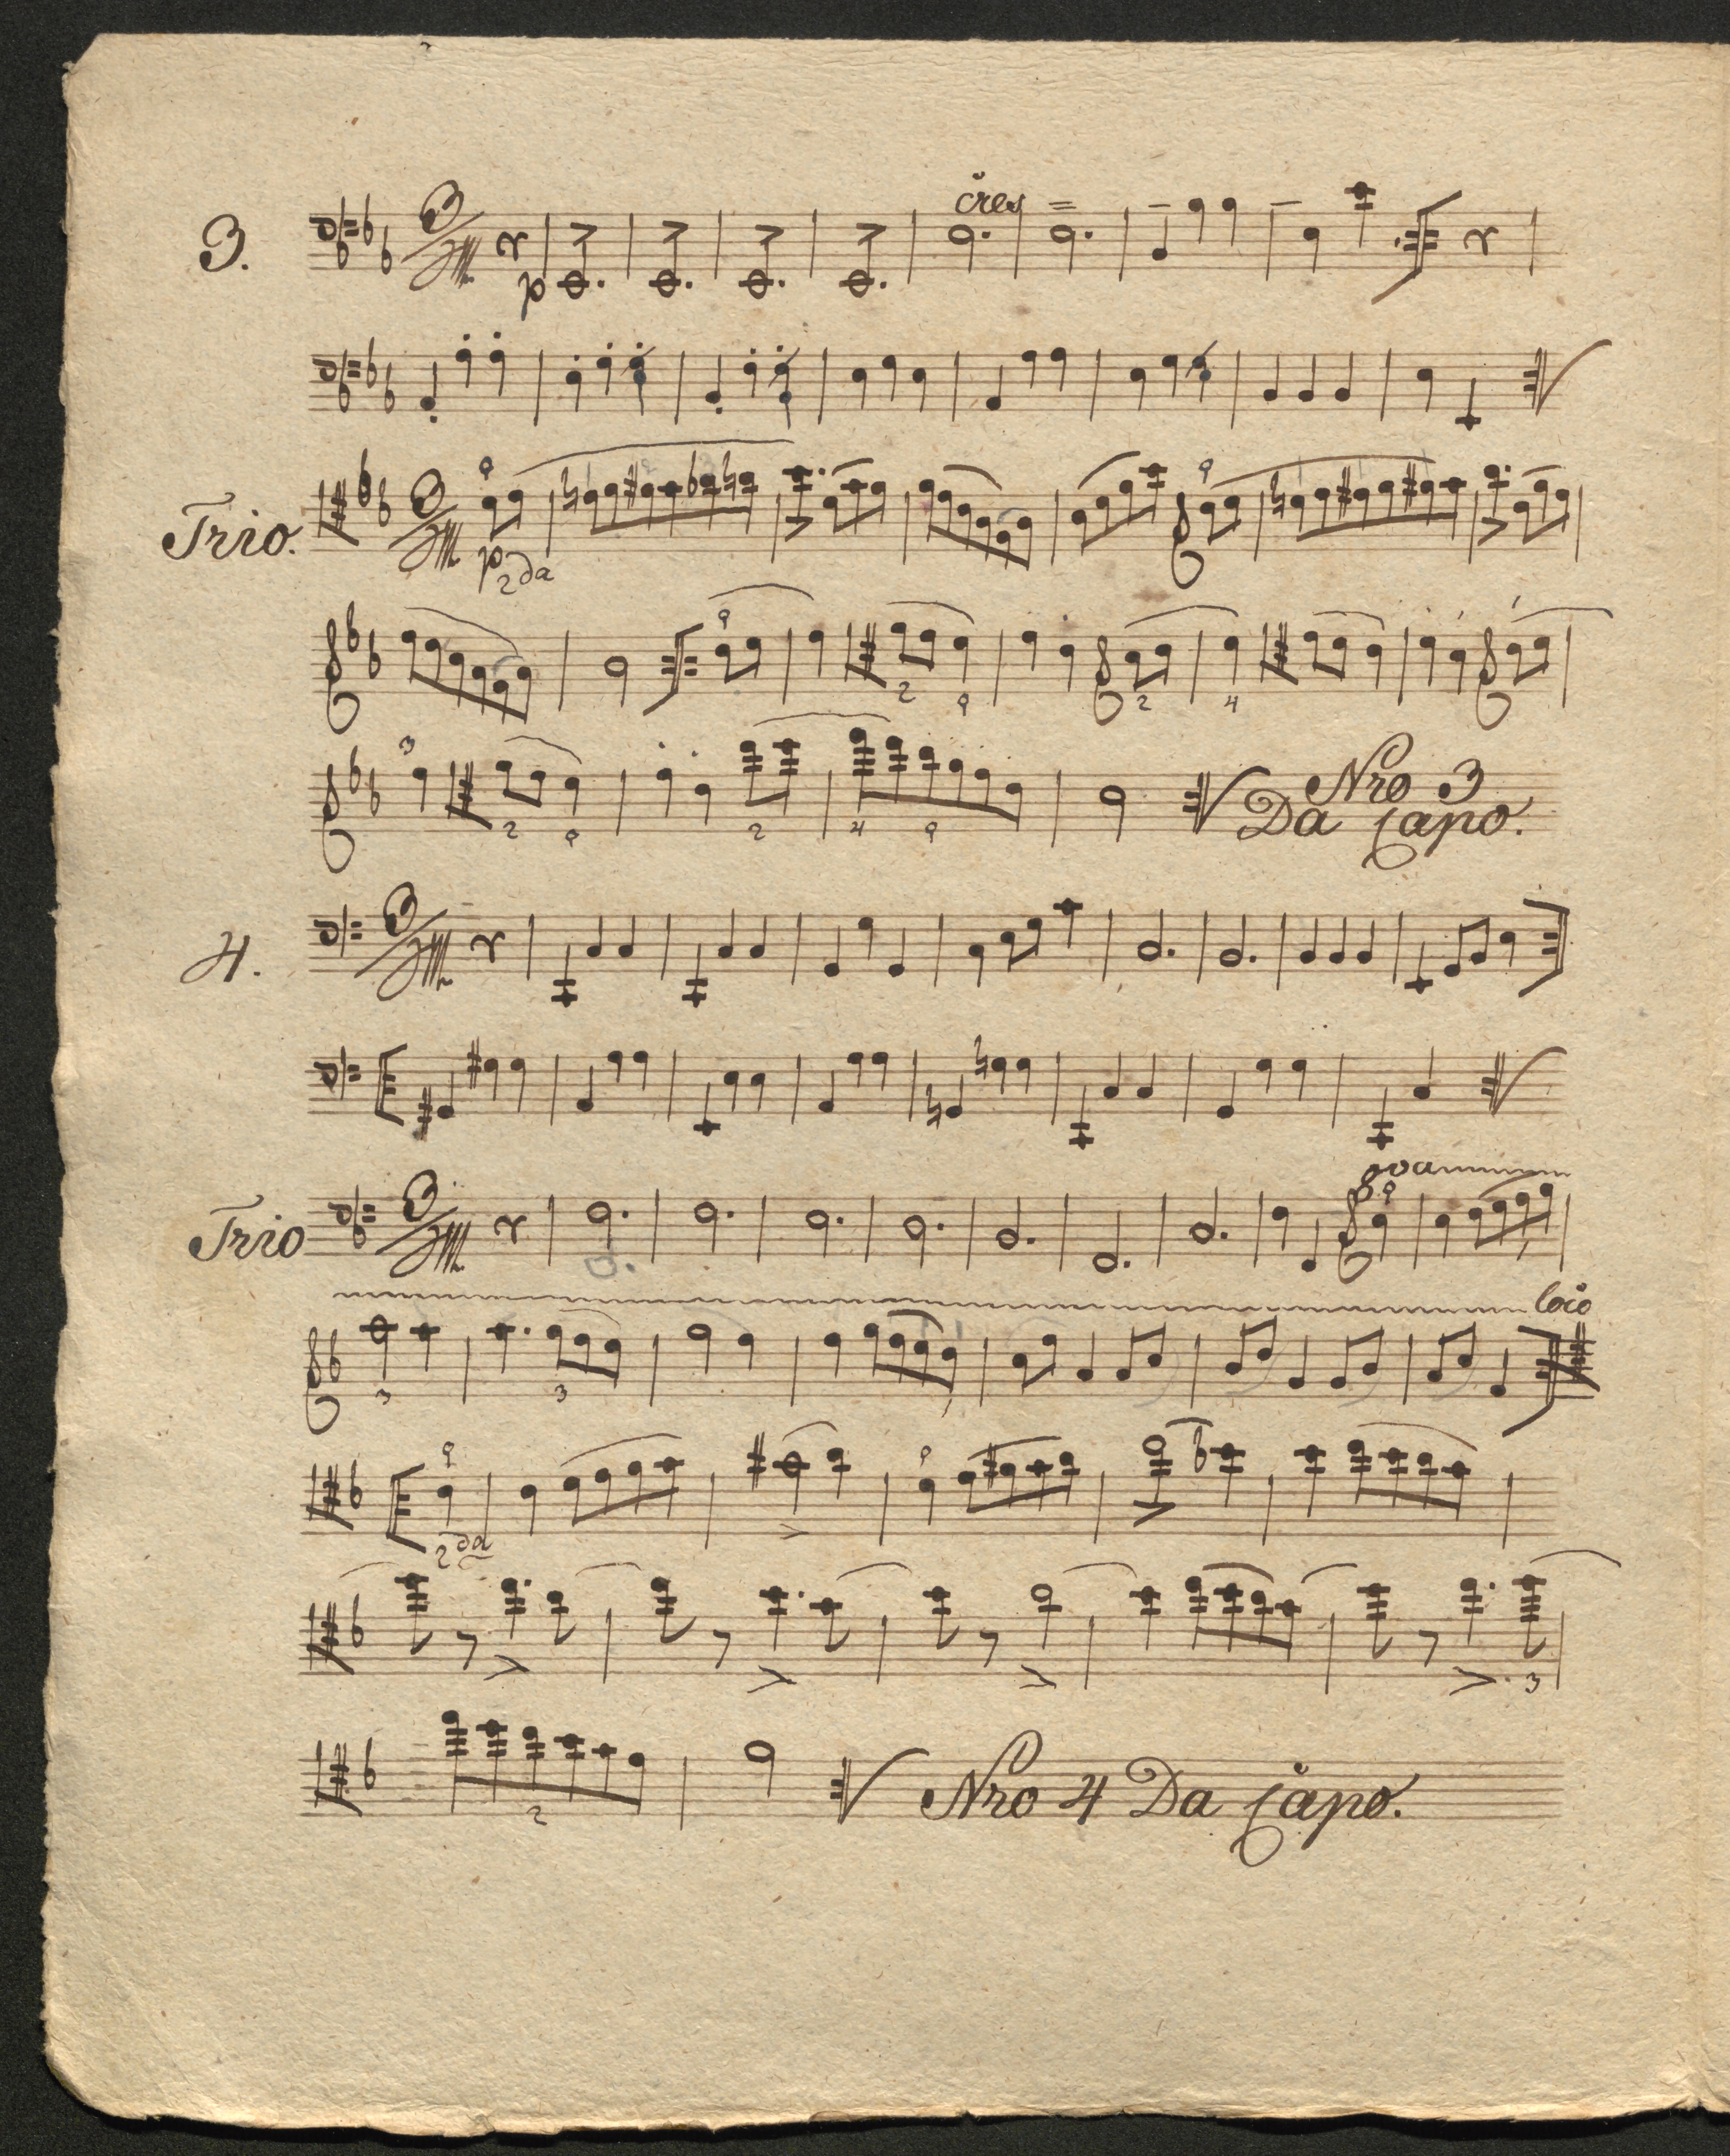 3.
cres =
p
Trio.
p
2da
Nro 3
Da Capo.
4.
8va
Trio
loco
2da
Nro 4 Da Capo.